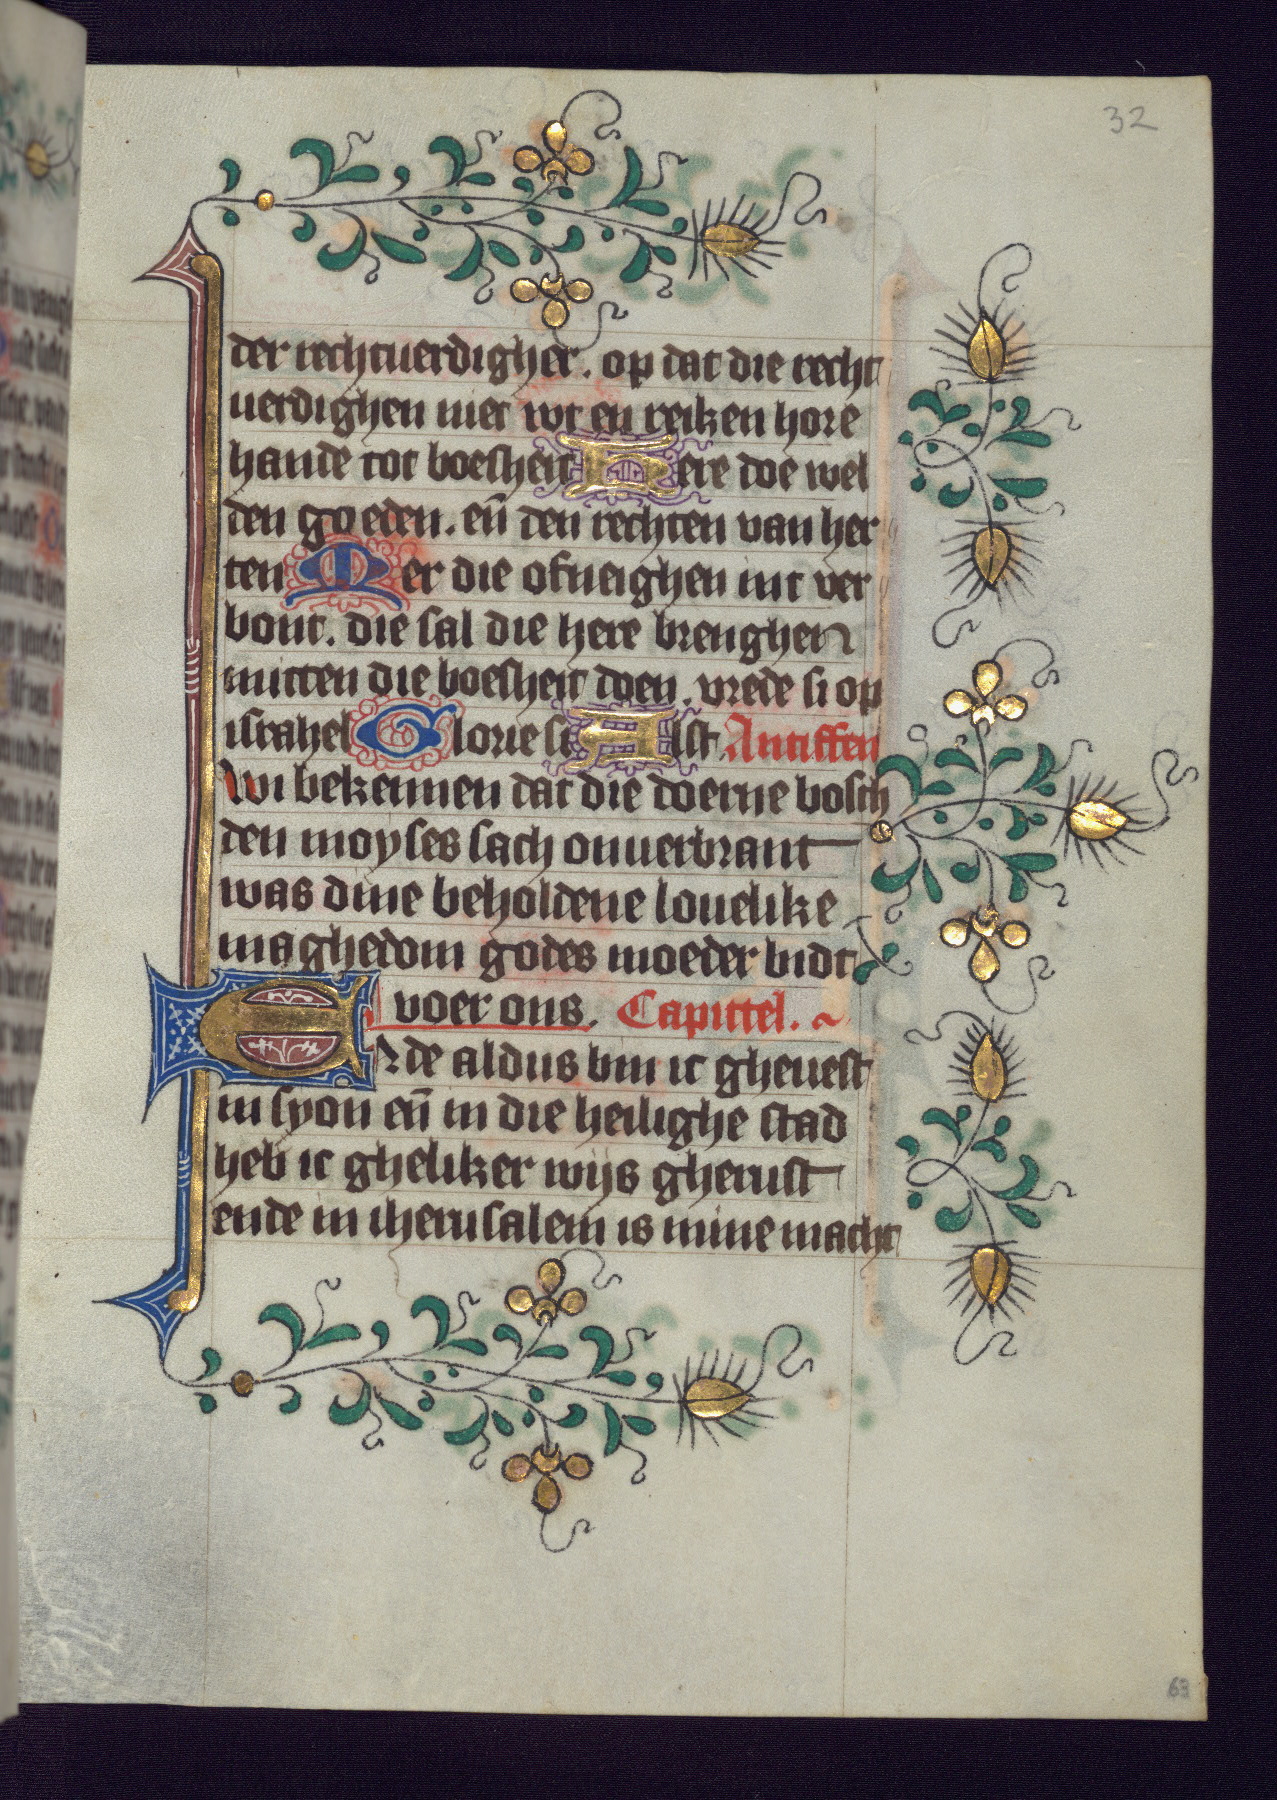 32
der rechtuerdigher. op dat die recht
uerdighen niet wt en reiken hore
hande tot boesheit Here doe wel
den goeden. en̄ den rechten van her
ten Mer die ofneighen int ver
bont. die sal die here brenghen
mitten die boesheit doen. vrede si op
israhel Glorie si Alst Antiffen
Wi bekennen dat die doerne bosch
den moyses sach onuerbrant
was dine beholdene louelike
maghedom godes moeder bidt
voer ons. Capittel.
Ende aldus bin ic gheuest
in syon en̄ in die heilighe stad
heb ic gheliker wijs gherust
ende in iherusalem is mine macht
63